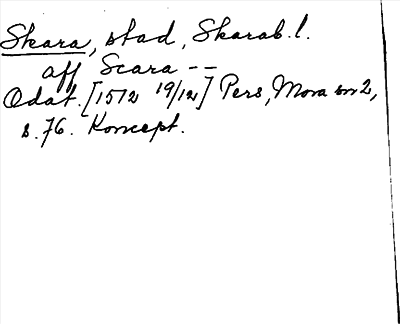 Skara, stad, Skarab. l.
aff Scara --
Odat. [1512 19/12] Pers, Mora sn 2,
s. 76. Koncept.